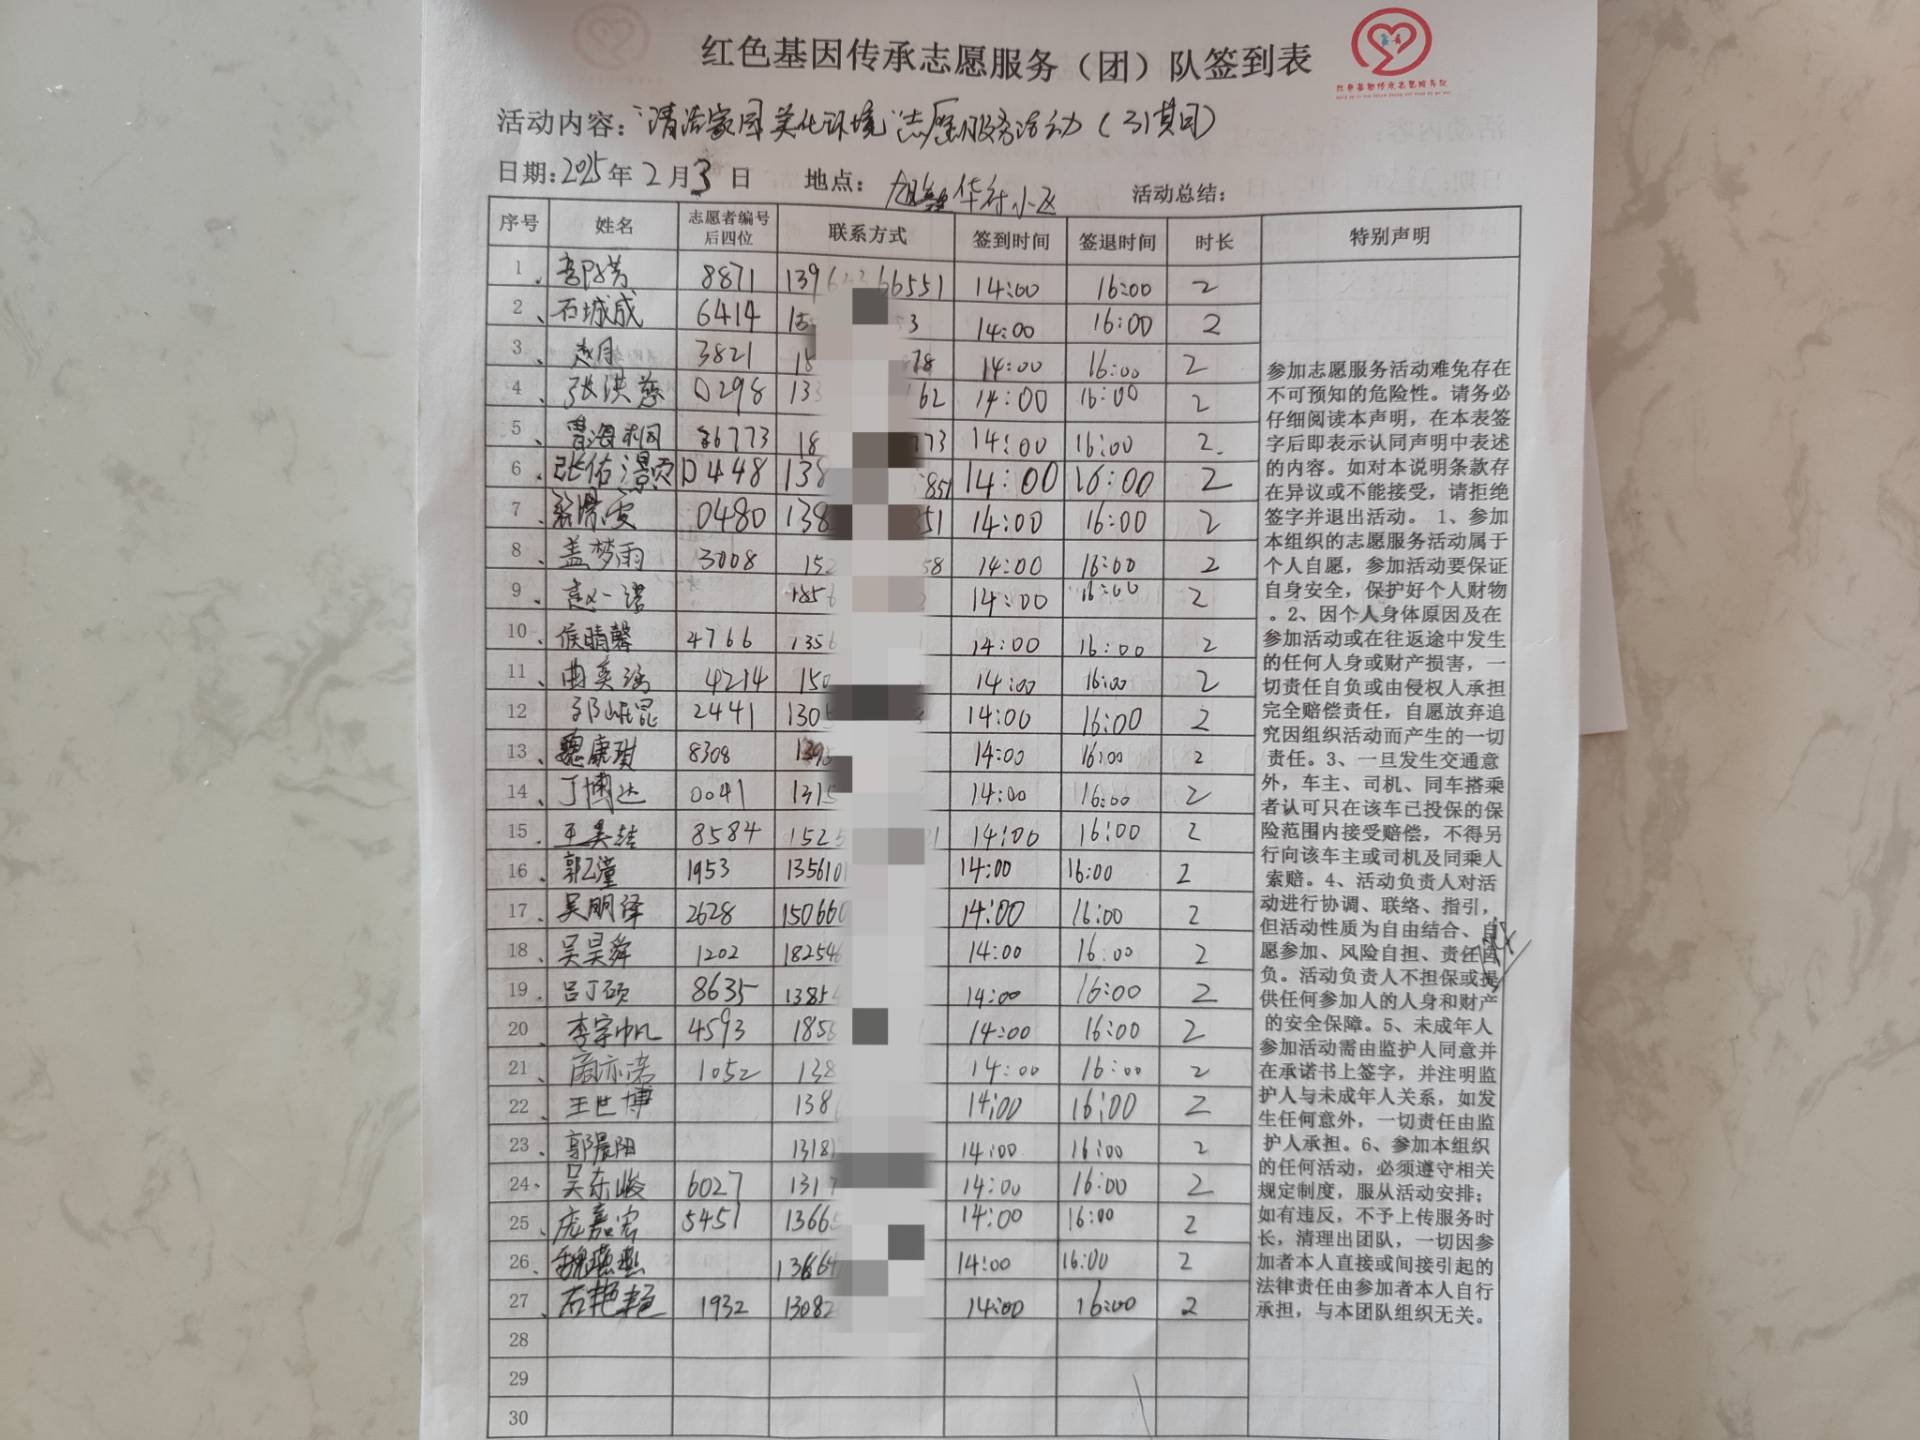 红色基因传承志愿服务（团）队签到表
红色基因传承志愿服务队
活动内容："清洁家园美化环境"志愿服务活动（引其同）
日期：2025年2月3日 地点： 华府小区 活动总结：
序号 姓名 志愿者编号后四位 联系方式 签到时间 签退时间 时长 特别声明
1 8871 139 66551 14:00 16:00 2
2 石城成 6414 15 53 14:00 16:00 2
3 赵月 3821 15 78 14:00 16:00 2
4 张洪慈 0298 133 62 14:00 16:00 2
5 6773 18 773 14:00 16:00 2
6 张佑灏 0448 138 851 14:00 16:00 2
7 0480 138 51 14:00 16:00 2
8 盖梦雨 3008 152 58 14:00 16:00 2
9 赵一诺 1856 14:00 16:00 2
10 侯晴馨 4766 1356 14:00 16:00 2
11 曲奕涵 4214 150 14:00 16:00 2
12 2441 1305 14:00 16:00 2
13 魏康琪 8308 1393 14:00 16:00 2
14 丁博达 0041 1315 14:00 16:00 2
15 王昊喆 8584 1525 14:00 16:00 2
16 郭乙潼 1953 135610 14:00 16:00 2
17 吴明泽 2628 150660 14:00 16:00 2
18 吴昊舜 1202 182546 14:00 16:00 2
19 吕丁硕 8635 13854 14:00 16:00 2
20 李宗帆 4593 1856 14:00 16:00 2
21 商亦诺 1052 138 14:00 16:00 2
22 王世博 138 14:00 16:00 2
23 郭晨阳 1318 14:00 16:00 2
24 吴东峻 6027 1317 14:00 16:00 2
25 庞嘉宏 5451 13665 14:00 16:00 2
26 魏燕燕 13864 14:00 16:00 2
27 石艳艳 1932 13082 14:00 16:00 2
28
29
30
参加志愿服务活动难免存在
不可预知的危险性。请务必
仔细阅读本声明，在本表签
字后即表示认同声明中表述
的内容。如对本说明条款存
在异议或不能接受，请拒绝
签字并退出活动。 1、参加
本组织的志愿服务活动属于
个人自愿，参加活动要保证
自身安全，保护好个人财物
。2、因个人身体原因及在
参加活动或在往返途中发生
的任何人身或财产损害，一
切责任自负或由侵权人承担
完全赔偿责任，自愿放弃追
究因组织活动而产生的一切
责任。3、一旦发生交通意
外，车主、司机、同车搭乘
者认可只在该车已投保的保
险范围内接受赔偿，不得另
行向该车主或司机及同乘人
索赔。4、活动负责人对活
动进行协调、联络、指引，
但活动性质为自由结合、自
愿参加、风险自担、责任自
负。活动负责人不担保或提
供任何参加人的人身和财产
的安全保障。5、未成年人
参加活动需由监护人同意并
在承诺书上签字，并注明监
护人与未成年人关系，如发
生任何意外，一切责任由监
护人承担。6、参加本组织
的任何活动，必须遵守相关
规定制度，服从活动安排；
如有违反，不予上传服务时
长，清理出团队，一切因参
加者本人直接或间接引起的
法律责任由参加者本人自行
承担，与本团队组织无关。